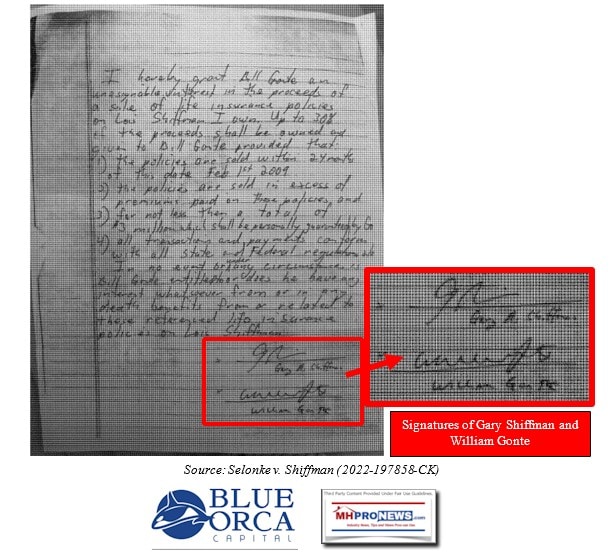 I hereby grant Bill Gonte an
unassignable interest in the proceeds of
a sale of life insurance policies
on Lois Shiffman I own. Up to 30%
of the proceeds shall be owned and
given to Bill Gonte provided that:
1) the policies are sold within 24 months
of this date Feb 1st 2009
2) the policies are sold in excess of
premiums paid on these policies, and
3) for not less then a total of
$3 million which shall be personally guaranteed by
4) all transactions and payments conform
with all State and Federal regulations
In no event or under any circumstance is
Bill Gonte entitled or does he have any
interest whatsoever from or in any
death benefits from or related to
these referenced life insurance
policies on Lois Shiffman
Gary A. Shiffman
William Gonte
Gary A. Shiffman
William Gonte
Signatures of Gary Shiffman and
William Gonte
Source: Selonke v. Shiffman (2022-197858-CK)
BLUE
ORCA
CAPITAL
Third Party Content Provided Under Fair Use Guidelines.
MHPRONEWS.com
Industry News, Tips and Views Pros can Use